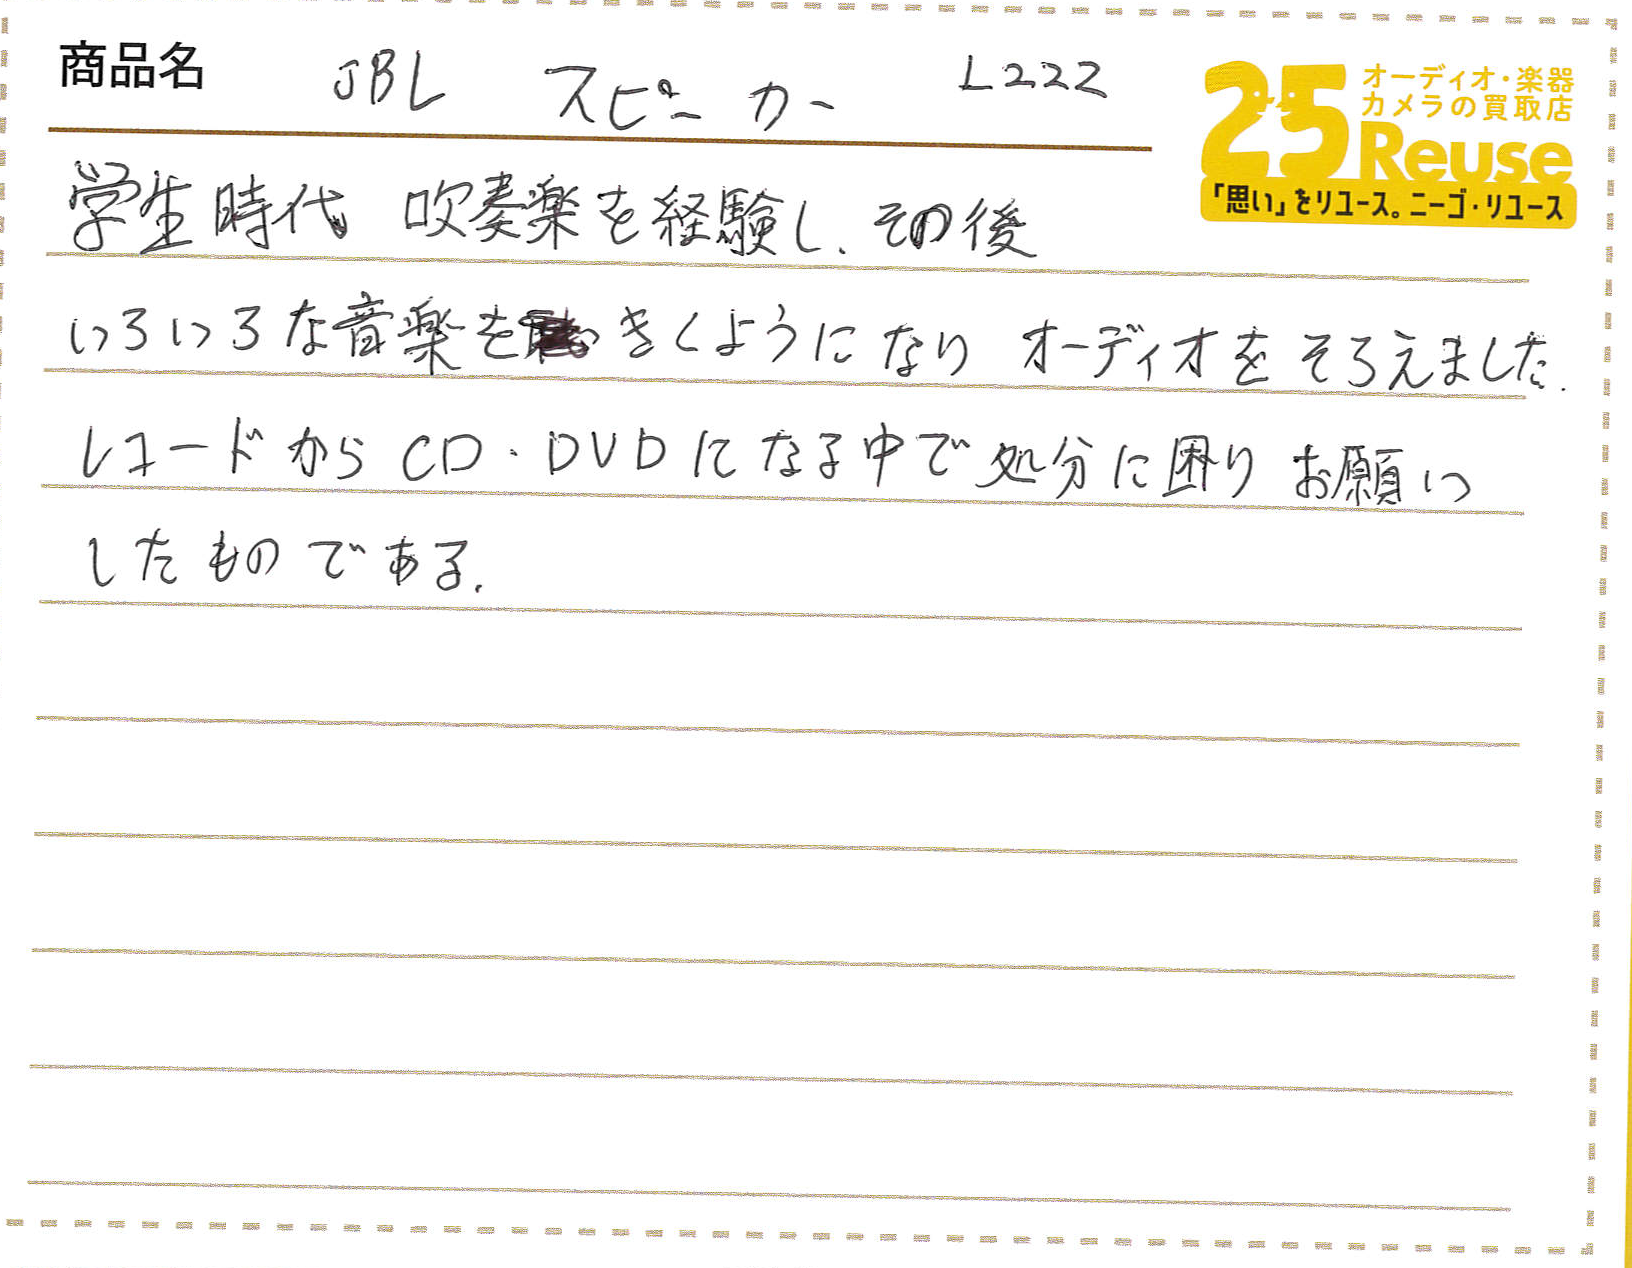 商品名 JBL スピーカー L222
25 オーディオ・楽器
カメラの買取店
Reuse
「思い」をリユース。ニーゴ・リユース
学生時代 吹奏楽を経験し、その後
いろいろな音楽をきくようになり オーディオをそろえました.
レコードからCD・DVDになる中で処分に困りお願い
したものである.